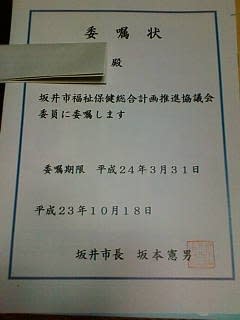 委嘱状
殿
坂井市福祉保健総合計画推進協議会
委員に委嘱します
委嘱期限 平成24年3月31日
平成23年10月18日
坂井市長 坂本憲男